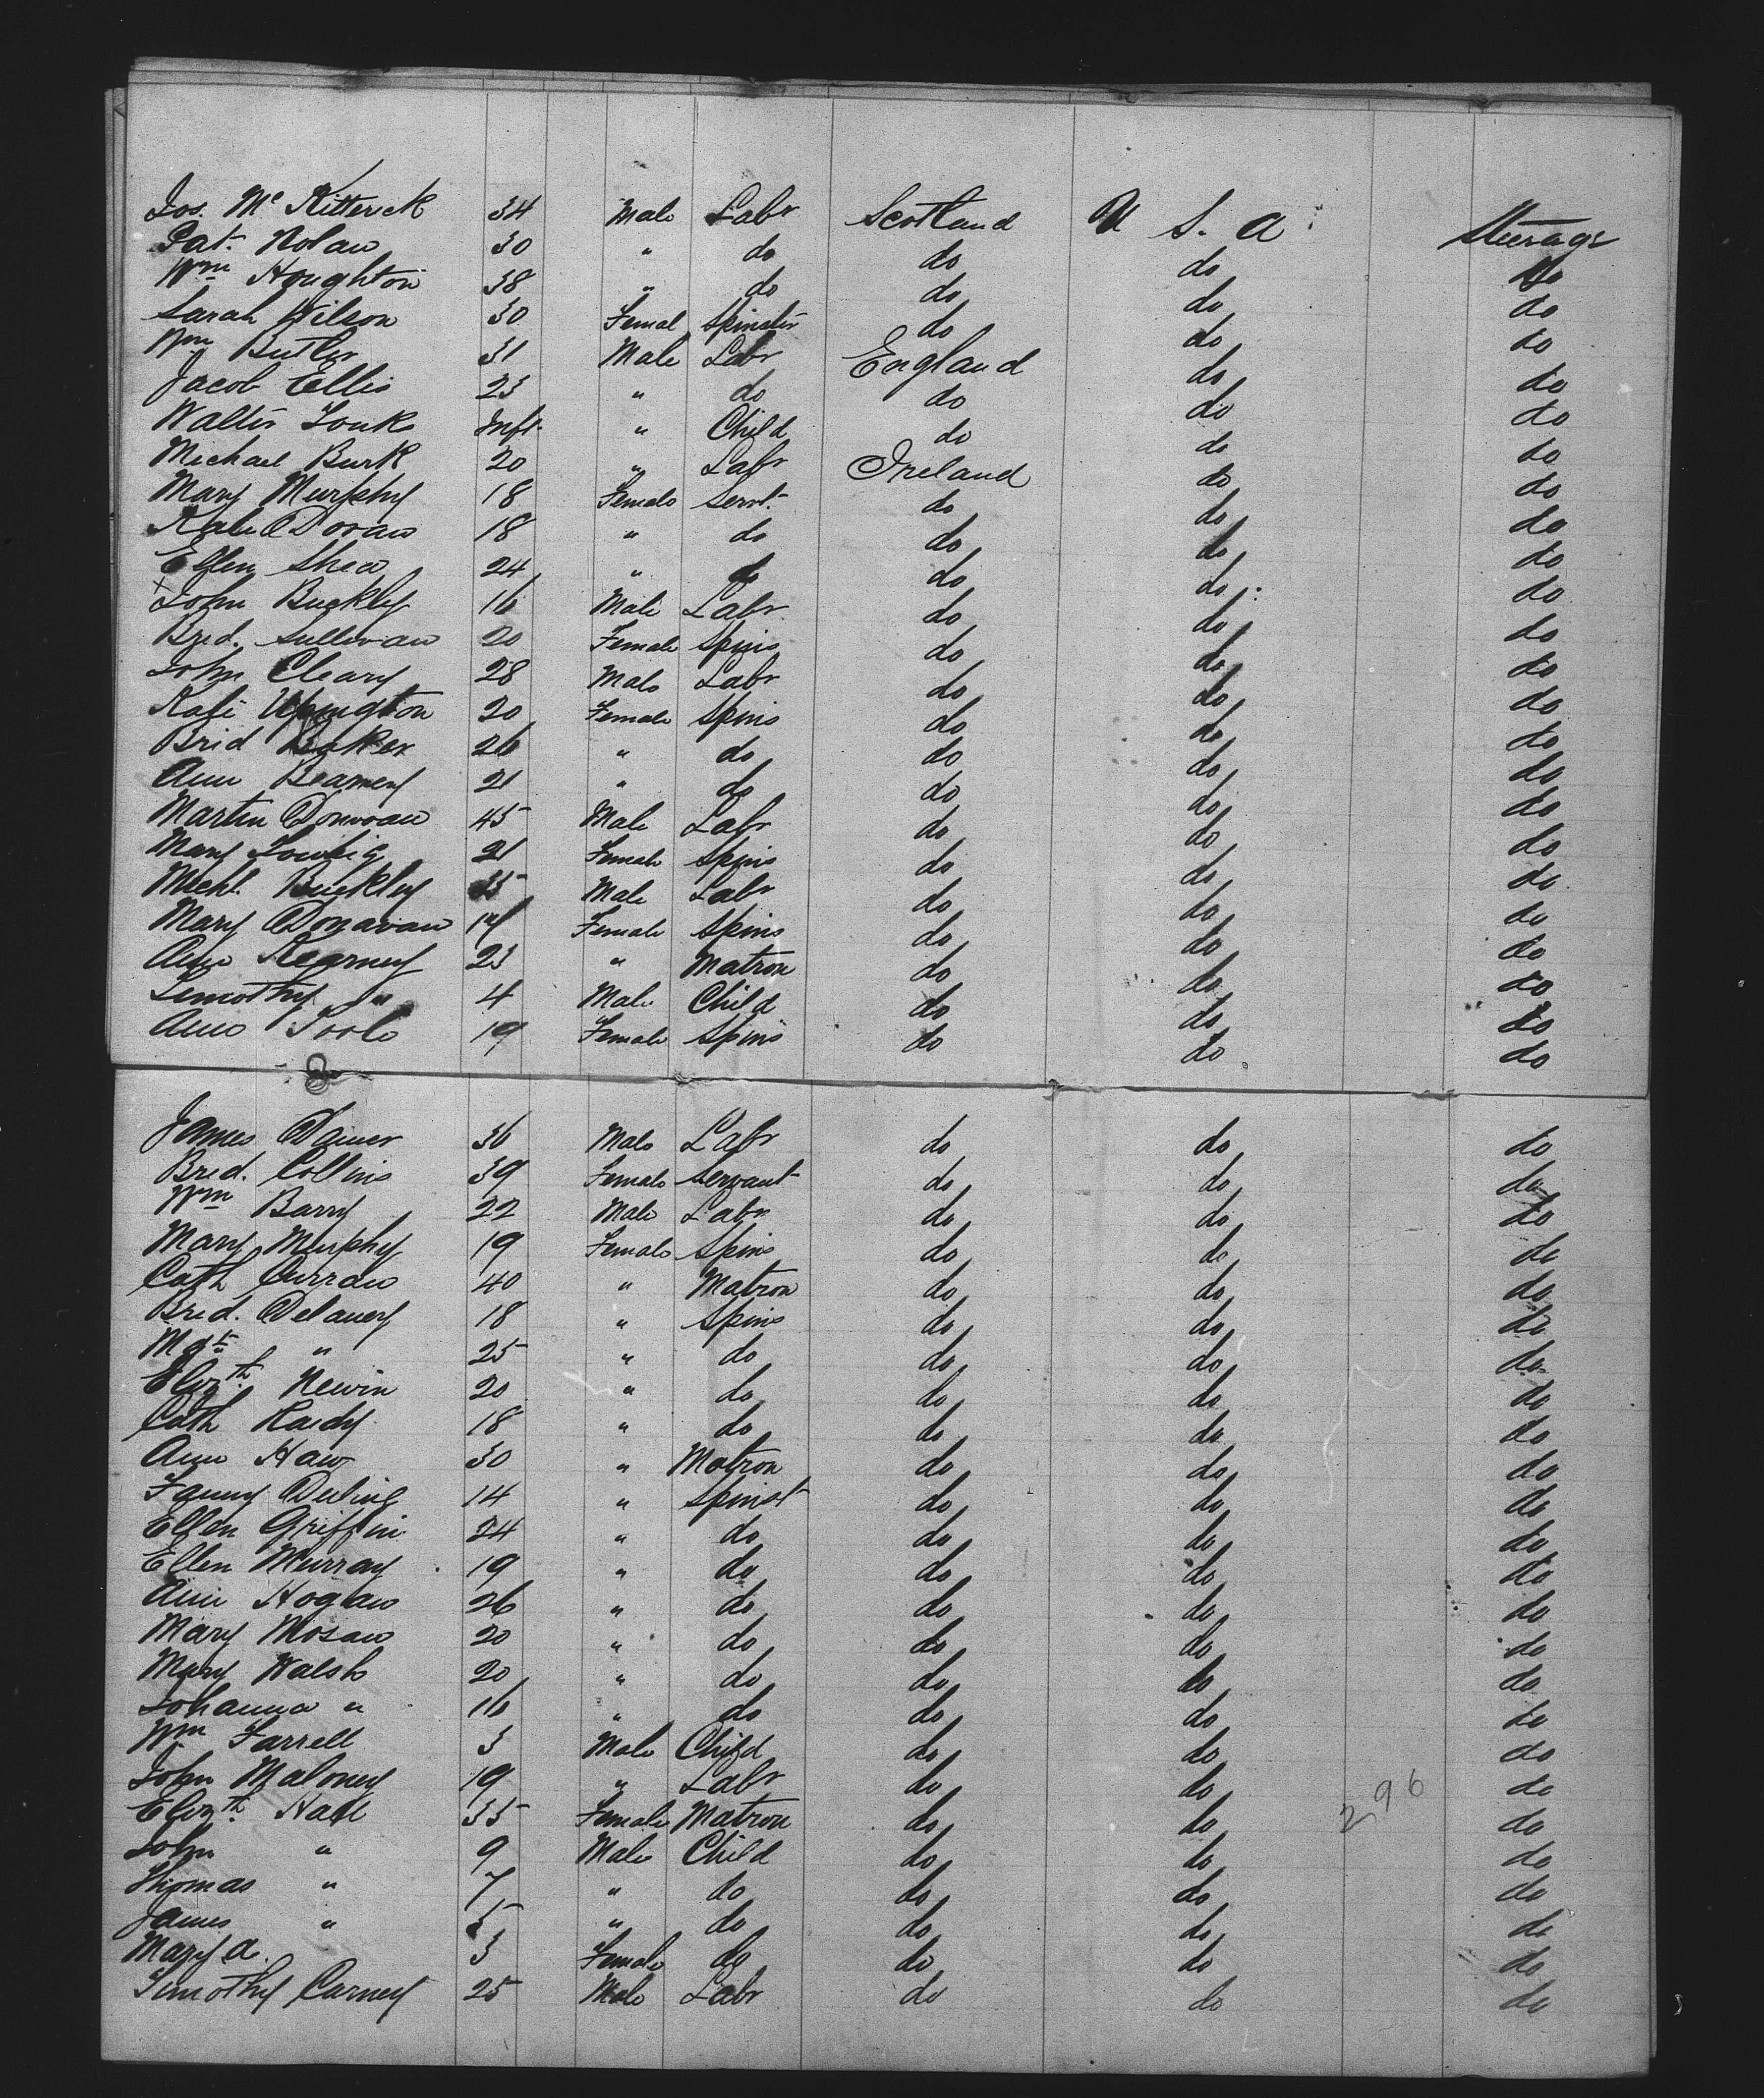 Jos. Mc Kitterick 34 Male Labr Scotland U S. A Steerage
Pat. Nolan 30 " do do do do
Wm Houghton 38 " do do do do
Sarah Wilson 30 Femal Spinster do do do
Wm Butler 31 Male Labr England do do
Jacob Ellis 23 " do do do do
Walter Inft. " Child do do do
Michael Burk 20 " Labr Ireland do do
Mary Murphy 18 Female Servt. do do do
Kate Doran 18 " do do do do
Ellen Shea 24 " do do do do
x John Buckley 16 Male Labr do do do
Brid. Sullivan 20 Female Spins do do do
John Cleary 28 Male Labr do do do
Kate Upington 20 Female Spins do do do
Brid Baker 26 " do do do do
Ann 21 " do do do do
Martin Donovan 45 Male Labr do do do
Mary 21 Female Spins do do do
Michl. Buckley 35 Male Labr do do do
Mary Donavan 19 Female Spins do do do
Ann Kearney 23 " Matron do do do
Timothy " 4 Male Child do do do
Ann Toole 19 Female Spins do do do
8
James 36 Male Labr do do do
Brid. Collins 39 Female Servant do do do
Wm Barry 22 Male Labr do do do
Mary Murphy 19 Female Spins do do do
Cath Curran 40 " Matron do do do
Brid. Delaney 18 " Spins do do do
Mgt " 25 " do do do do
Elizth. Newin 20 " do do do do
Cath 18 " do do do do
Ann Haw 30 " Matron do do do
Fanny 14 " Spinst do do do
Ellen Griffin 24 " do do do do
Ellen Murray 19 " do do do do
Ann Hogan 26 " do do do do
Mary 20 " do do do do
Mary Walsh 20 " do do do do
Johanna " 16 " do do do do
Wm Farrell 3 Male Child do do do
John Maloney 19 " Labr do do do
Elizth. Hall 35 Female Matron do do 296 do
John " 9 Male Child do do do
Thomas " 7 " do do do do
James " 5 " do do do do
Mary A. 3 Female do do do do
Timothy Carney 25 Male Labr do do do